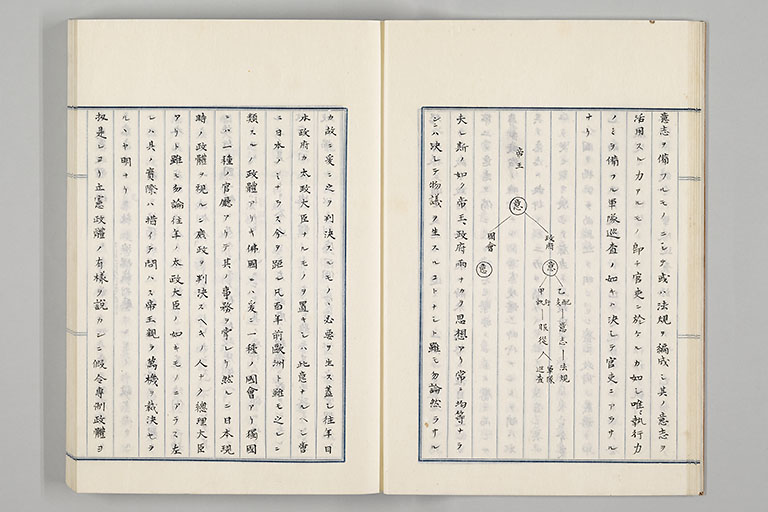 意志ヲ備フルモノニシテ或ハ法規ヲ編成シ其ノ意志ヲ
活用スル力アルモノ即チ官吏ニ於ケルカ如シ唯執行力
ノミヲ備フル軍隊巡査ノ如キハ決シテ官吏ニアラサル
ナリ
帝王
意
政府
意
國會
意
乙支配
意志
法規
甲執行
服從
軍隊
巡査
夫レ斯ノ如ク帝王、政府兩ナカラ思想アリ常ニ均等ナラ
シハ決シテ物議ヲ生スルコトナシト雖モ勿論然ラサル
カ故ニ爰ニ之ヲ判決スルモノヽ必要ヲ生ス蓋シ往年日
本政府カ太政大臣ナルモノヲ置キシハ此意ナルヘシ啻
ニ日本ノミナラス今ヲ距ル凡百年前歐洲ト雖モ之レニ
類スルノ政體アリキ佛國ニハ爰ニ一種ノ國會アリ獨國
ニハ一種ノ官廳アリテ其ノ事務ヲ掌レリ然ルニ日本現
時ノ政體ヲ視ルニ庶政ヲ判決スヘキノ人ナク總理大臣
アリト雖モ勿論往年ノ太政大臣ノ如キモノニアラス左
レハ其ノ實際ハ措イテ問ハス帝王親ラ萬機ヲ裁決セラ
ルヽヤ明ナリ
扨是レヨリ立憲政體ノ有樣ヲ說カンニ假令專制政體ヨ